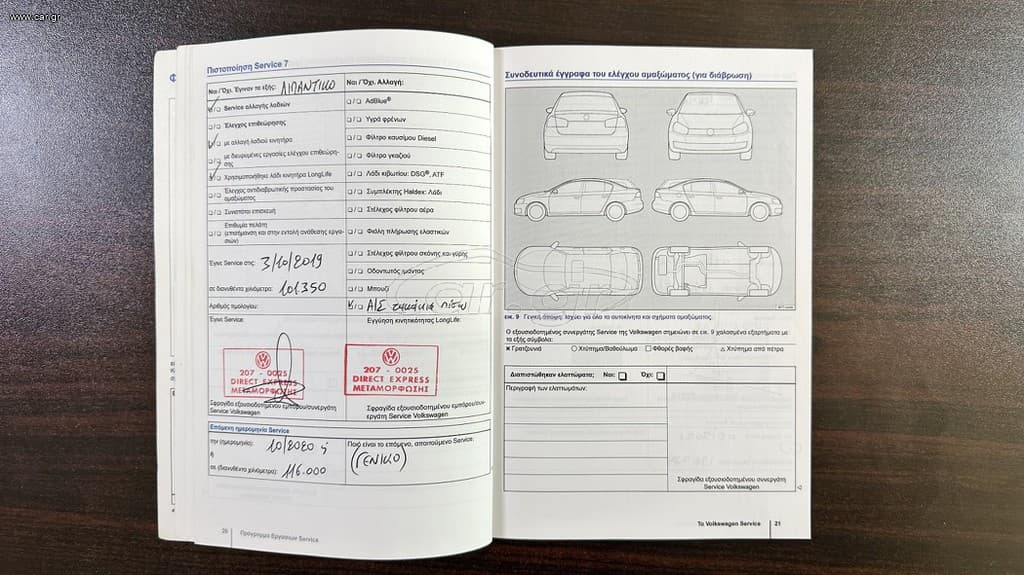 www.car.gr
Πιστοποίηση Service 7
Ναι / Όχι. Έγιναν τα εξής: ΛΙΠΑΝΤΙΚΟ
Service αλλαγής λαδιών
Έλεγχος επιθεώρησης
με αλλαγή λαδιού κινητήρα
με διευρυμένες εργασίες ελέγχου επιθεώρη-
σης
Χρησιμοποιήθηκε λάδι κινητήρα LongLife
Έλεγχος αντιδιαβρωτικής προστασίας του
αμαξώματος
Συναπτάται επισκευή
Επιθυμία πελάτη
(επισήμανση και στην εντολή ανάθεσης εργα-
σιών)
Έγινε Service στις: 3/10/2019
σε διανυθέντα χιλιόμετρα: 101.350
Αριθμός τιμολογίου:
Έγινε Service:
207 - 0025
DIRECT EXPRESS
ΜΕΤΑΜΟΡΦΩΣΗΣ
Σφραγίδα εξουσιοδοτημένου εμπόρου/συνεργάτη
Service Volkswagen
Ναι / Όχι. Αλλαγή:
AdBlue®
Υγρά φρένων
Φίλτρο καυσίμου Diesel
Φίλτρο γκαζιού
Λάδι κιβωτίου: DSG®, ATF
Συμπλέκτης Haldex: Λάδι
Στέλεχος φίλτρου αέρα
Φιάλη πλήρωσης ελαστικών
Στέλεχος φίλτρου σκόνης και γύρης
Οδοντωτός ιμάντας
Μπουζί
Α/Σ τακάκια πίσω
Εγγύηση κινητικότητας LongLife:
207 - 0025
DIRECT EXPRESS
ΜΕΤΑΜΟΡΦΩΣΗΣ
Σφραγίδα εξουσιοδοτημένου εμπόρου/συν-
εργάτη Service Volkswagen
Επόμενη ημερομηνία Service
την (ημερομηνία): 10/2020 ή
ή
σε (διανυθέντα χιλιόμετρα): 116.000
Ποιό είναι το επόμενο, απαιτούμενο Service:
(ΓΕΝΙΚΟ)
20 Πρόγραμμα Εργασιών Service
Συνοδευτικά έγγραφα του ελέγχου αμαξώματος (για διάβρωση)
car.gr
εικ. 9 Γενική άποψη: Ισχύει για όλα τα αυτοκίνητα και σχήματα αμαξώματος.
Ο εξουσιοδοτημένος συνεργάτης Service της Volkswagen σημειώνει σε εικ. 9 χαλασμένα εξαρτήματα με
τα εξής σύμβολα:
× Γρατζουνιά ○ Χτύπημα/Βαθούλωμα □ Φθορές βαφής △ Χτύπημα από πέτρα
Διαπιστώθηκαν ελαττώματα; Ναι: Όχι:
Περιγραφή των ελαττωμάτων:
Σφραγίδα εξουσιοδοτημένου συνεργάτη
Service Volkswagen
Το Volkswagen Service 21